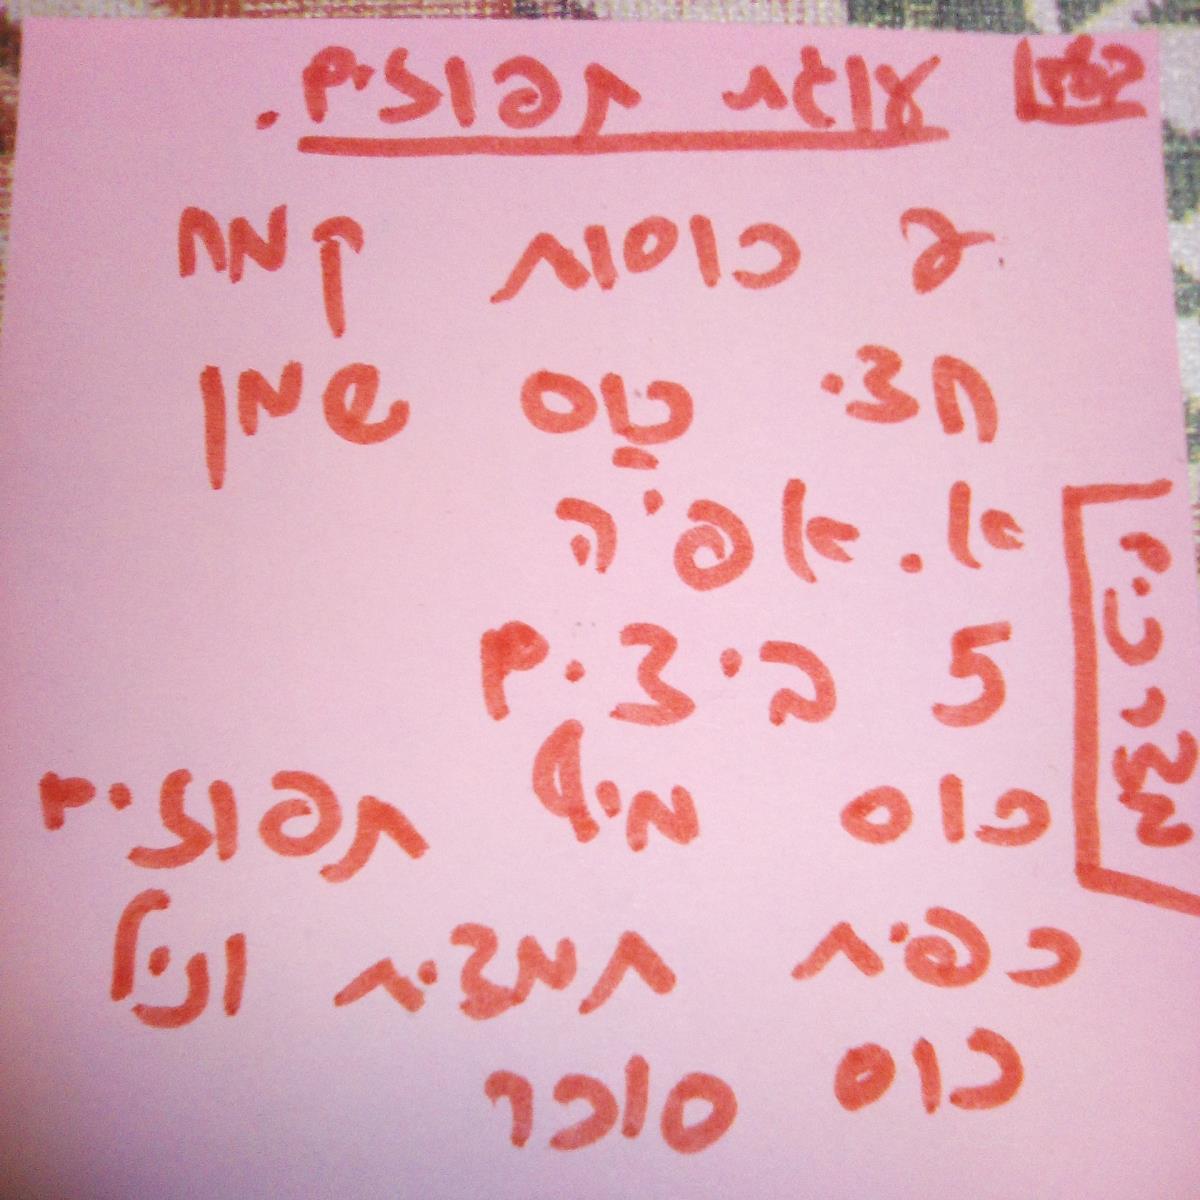 עוגת תפוזים.
2 כוסות קמח
חצי כוס שמן
א. אפיה
5 ביצים
כוס מיץ תפוזים
כפית תמצית וניל
כוס סוכר
מצרכים